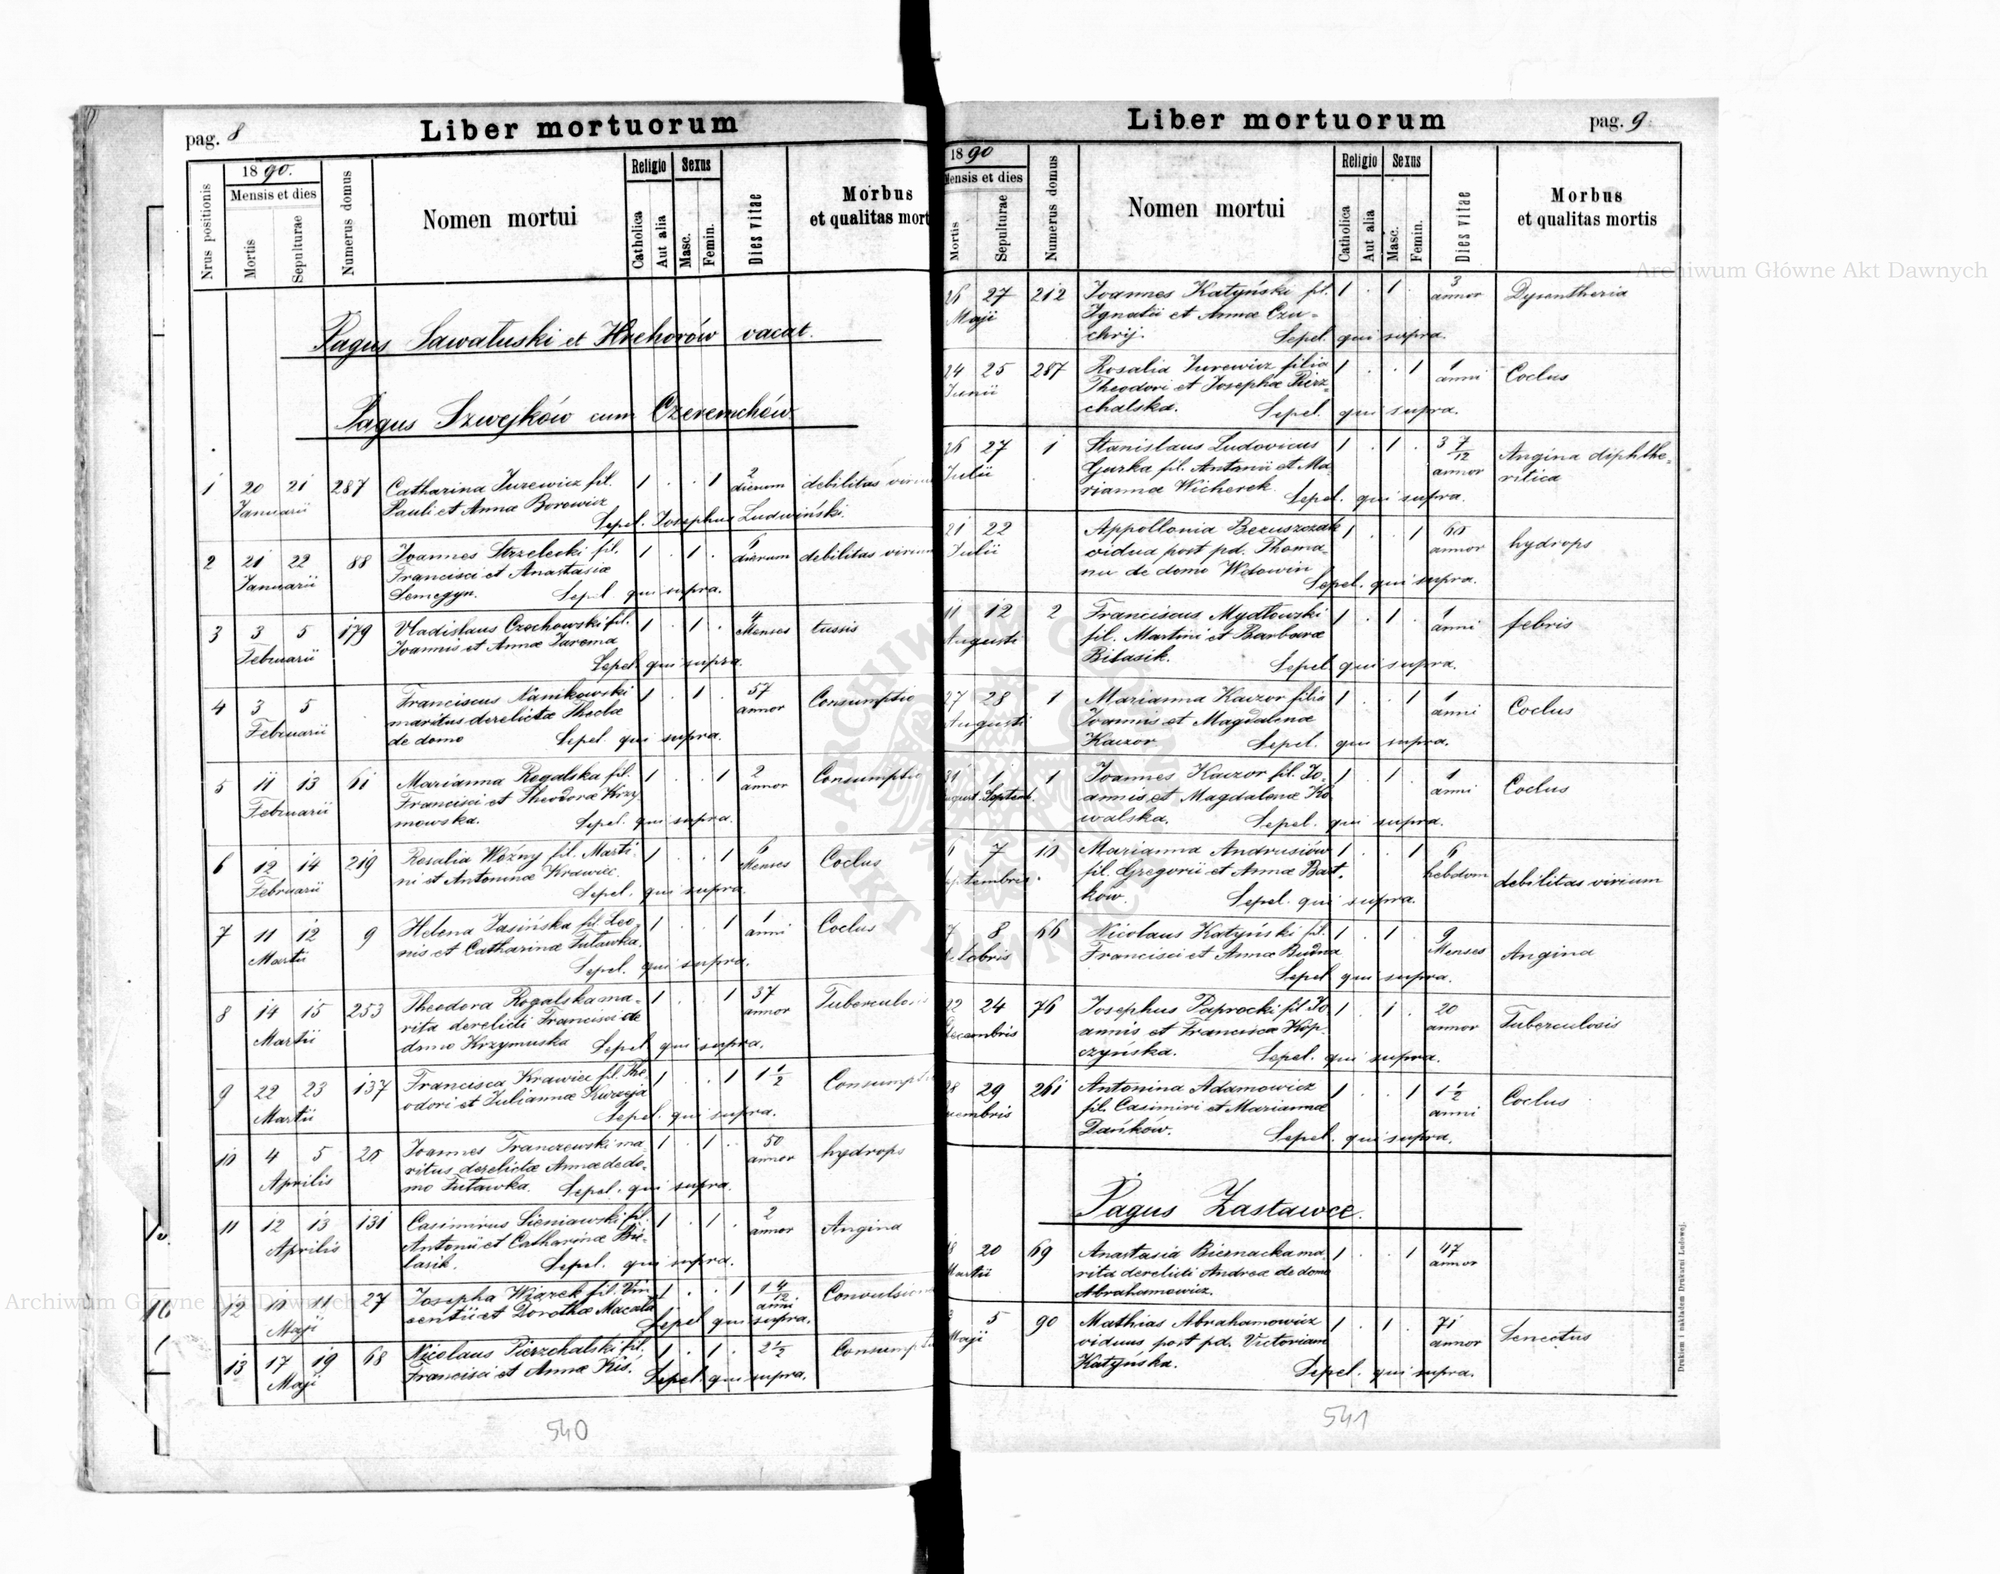 Liber mortuorum
pag. 8
1890.
Nrus positionis
Mensis et dies
Mortis
Sepulturae
Numerus domus
Nomen mortui
Religio
Catholica
Aut alia
Sexus
Masc.
Femin.
Dies vitae
Morbus
et qualitas mort
Pagus Sawaluski et Hrehorów vacat.
Pagus Szwejków cum Czeremchów
1 20 21 287 Catharina Jurewicz fil. 1 . . 1 2 dierum debilitas virium
Januarii Pauli et Annæ Borowicz
Sepel. Josephus Ludwiński.
2 21 22 88 Joannes Strzelecki fil. 1 . 1 . 6 dierum debilitas virium
Januarii Francisci et Anastasiæ
Semegyn. Sepel qui supra.
3 3 5 179 Vladislaus Czechowski fil. 1 . 1 . 4 Menses tussis
Februarii Joannis et Annæ Jarema
Sepel. qui supra.
4 3 5 Franciscus Nanikowski 1 . 1 . 57 annor Consumptio
Februarii maritus derelictæ Theclæ
de domo Sepel. qui supra.
5 11 13 61 Marianna Rogalska fil. 1 . . 1 2 annor Consumptio
Februarii Francisci et Theodoræ Krzy-
mowska. Sepel. qui supra.
6 12 14 219 Rosalia Woźny fil. Marti- 1 . . 1 6 Menses Coclus
Februarii ni et Antoninæ Krawiec.
Sepel. qui supra.
7 11 12 9 Helena Jasińska fil. Leo- 1 . . 1 1 anni Coclus
Martii nis et Catharinæ Tutawka.
Sepel. qui supra.
8 14 15 253 Theodora Rogalska ma- 1 . . 1 37 annor Tuberculosis
Martii rita derelicti Francisci de
domo Krzymuska Sepel. qui supra.
9 22 23 137 Francisca Krawiec fil. The- 1 . . 1 1 1/2 Consumptio
Martii odori et Juliannæ Kurzeja
Sepel. qui supra.
10 4 5 20 Joannes Franczewski ma- 1 . 1 . 50 annor hydrops
Aprilis ritus derelictæ Annæ de do-
mo Tutawka. Sepel. qui supra.
11 12 13 131 Casimirus Sieniawski fil. 1 . 1 . 2 annor Angina
Aprilis Antonii et Catharinæ Bi-
lasik. Sepel. qui supra.
12 10 11 27 Josepha Wiązek fil. Vin- 1 . . 1 1 4/12 anni Convulsio
Maji centii et Dorotheæ Macała
Sepel qui supra.
13 17 19 68 Nicolaus Pierzchalski fil. 1 . 1 . 2 1/2 Consumptio
Maji Francisci et Annæ Kiś.
Sepel. qui supra.
540
Liber mortuorum
pag. 9
1890
Mensis et dies
Mortis
Sepulturae
Numerus domus
Nomen mortui
Religio
Catholica
Aut alia
Sexus
Masc.
Femin.
Dies vitae
Morbus
et qualitas mortis
26 27 212 Joannes Katyński fil. 1 . 1 . 3 annor Dysantheria
Maji Ignatii et Annæ Czu-
chrij. Sepel. qui supra.
24 25 287 Rosalia Jurewicz filia 1 . . 1 1 anni Coclus
Junii Theodori et Josephæ Pierz-
chalska. Sepel. qui supra.
26 27 1 Stanislaus Ludovicus 1 . 1 . 3 7/12 annor Angina diphthe-
Julii Gurka fil. Antonii et Ma- ritica
riannæ Wicherek. Sepel. qui supra.
21 22 Appollonia Bezuszczak 1 . . 1 60 annor hydrops
Julii vidua post pd. Thoma-
nu de domo Wdowin
Sepel. qui supra.
11 12 2 Franciscus Mydłowski 1 . 1 . 1 anni febris
Augusti fil. Martini et Barbaræ
Bilasik. Sepel qui supra.
27 28 1 Marianna Kaczor filia 1 . . 1 1 anni Coclus
Augusti Joannis et Magdalenæ
Kaczor Sepel. qui supra.
31 1 1 Joannes Kaczor fil. Jo- 1 . 1 . 1 anni Coclus
August Septemb. annis et Magdalenæ Ko-
walska. Sepel. qui supra.
6 7 10 Marianna Andrusiów 1 . . 1 6 hebdom debilitas virium
ptembris fil. Gregorii et Annæ Bart-
ków. Sepel. qui supra.
7 8 66 Nicolaus Katyński fil. 1 . 1 . 9 Menses Angina
ctobris Francisci et Annæ Budna
Sepel qui supra.
22 24 76 Josephus Paprocki fil Jo- 1 . 1 . 20 annor Tuberculosis
Decembris annis et Francisca Kop-
czyńska. Sepel. qui supra.
28 29 261 Antonina Adamowicz 1 . . 1 1 1/2 anni Coclus
cembris fil. Casimiri et Mariannæ
Dańków. Sepel. qui supra.
Pagus Zastawce.
18 20 69 Anastasia Biernacka ma- 1 . . 1 47 annor
Martii rita derelicti Andreæ de domo
Abrahamowicz.
3 5 90 Mathias Abrahamowicz 1 . 1 . 71 annor Senectus
Maji viduus post pd. Victoriam
Katyńska. Sepel. qui supra.
Drukiem i nakładem Drukarni Ludowej.
541
Archiwum Główne Akt Dawnych
Archiwum Główne Akt Dawnych
ARCHIWUM GŁÓWNE AKT DAWNYCH